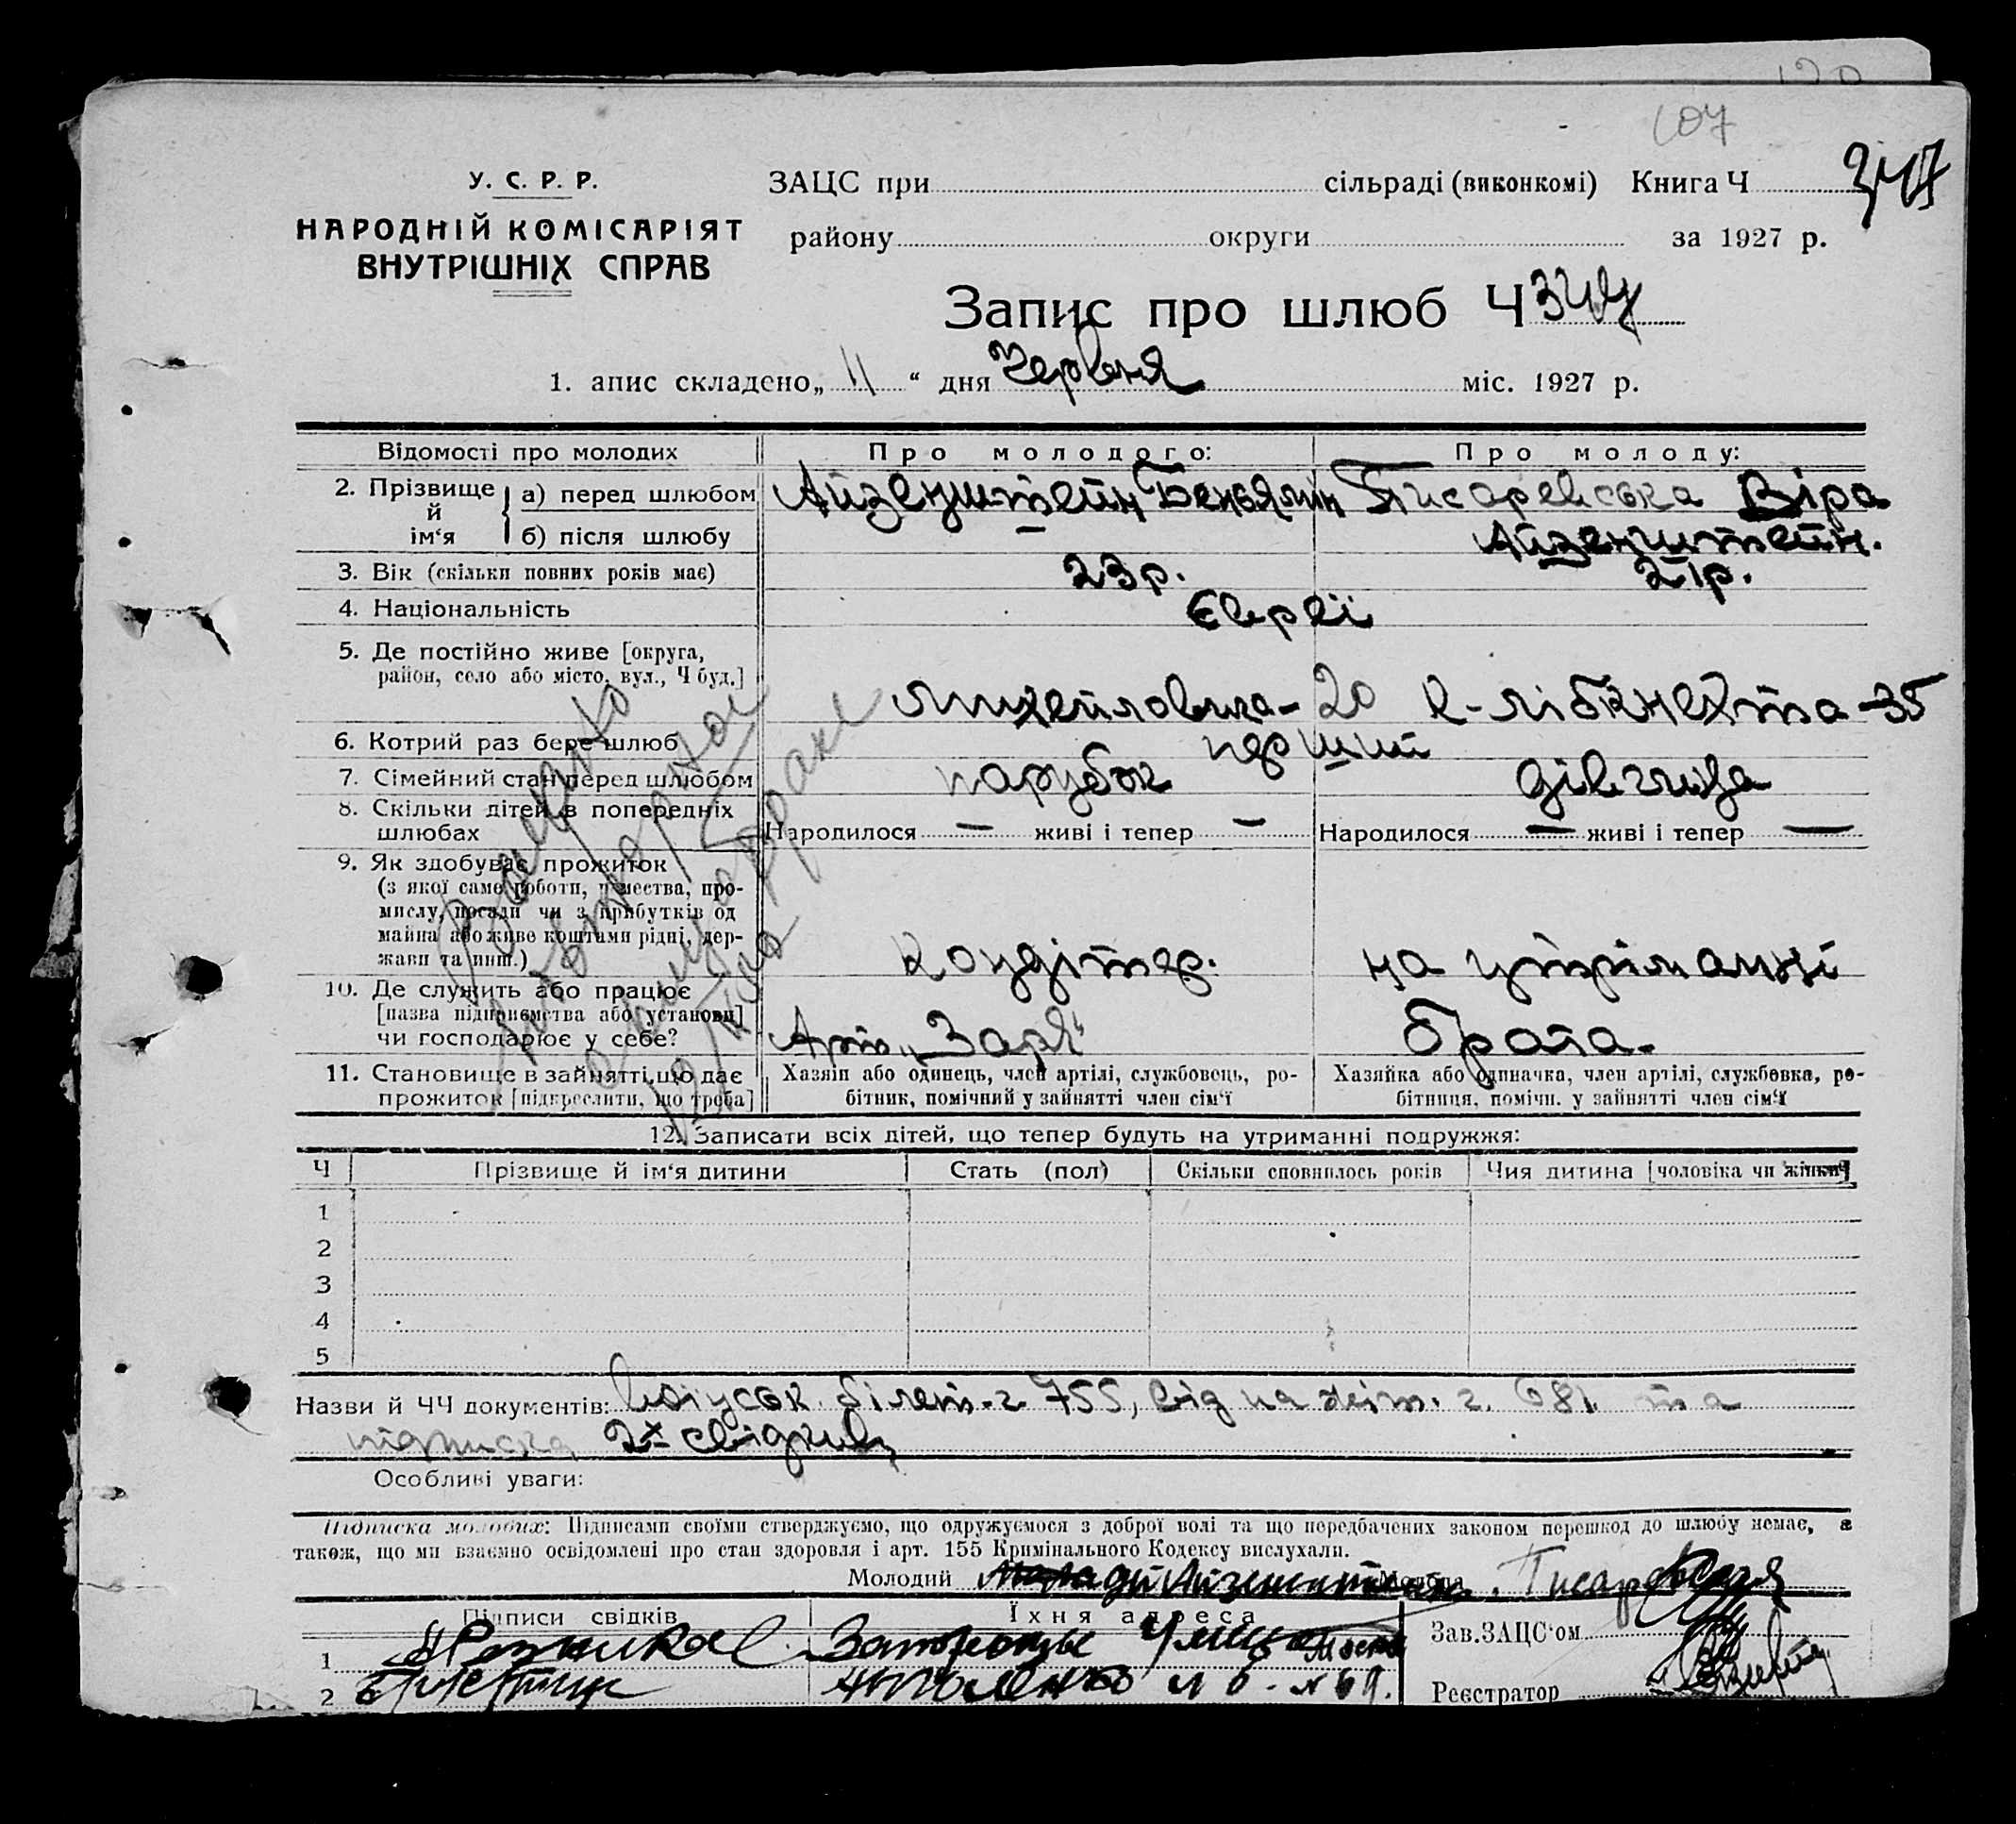 107
У. С. Р. Р.
НАРОДНІЙ КОМІСАРІЯТ
ВНУТРІШНІХ СПРАВ
ЗАЦС при сільраді (виконкомі) Книга Ч 347
району округи за 1927 р.
Запис про шлюб Ч 347
1. апис складено „ 11 “ дня Червня міс. 1927 р.
Відомості про молодих Про молодого: Про молоду:
2. Прізвище й ім‘я а) перед шлюбом Айзенштейн Беньямін Писаревська Віра
б) після шлюбу Айзенштейн.
3. Вік (скільки повних років має) 23 р. 21 р.
4. Національність Євреї
5. Де постійно живе [округа,
район, село або місто, вул., Ч буд.] Михейловська - 20 К-Лібкнехта - 35
6. Котрий раз бере шлюб перший
7. Сімейний стан перед шлюбом парубок дівчина
8. Скільки дітей в попередніх
шлюбах Народилося — живі і тепер — Народилося — живі і тепер —
9. Як здобуває прожиток
(з якої саме роботи, ремества, про-
мислу, посади чи з прибутків од
майна або живе коштами рідні, дер-
жави та инш.) Кондітер. на утріманні
10. Де служить або працює
[назва підприємства або установи]
чи господарює у себе? Арт. „Заря“ брата.
11. Становище в зайнятті, що дає
прожиток [підкреслити, що треба]
Хазяїн або одинець, член артілі, службовець, ро-
бітник, помічний у зайнятті член сім‘ї
Хазяйка або одиначка, член артілі, службовка, ро-
бітниця, помічн. у зайнятті член сім‘ї
12. Записати всіх дітей, що тепер будуть на утриманні подружжя:
Ч Прізвище й ім‘я дитини Стать (пол) Скільки сповнилось років Чия дитина [чоловіка чи жінки]
1
2
3
4
5
Назви й ЧЧ документів: білет. ч. 755, від на жіт. ч. 681 та
підписка 2х свідків
Особливі уваги:
Підписка молодих: Підписами своїми стверджуємо, що одружуємося з доброї волі та що передбачених законом перешкод до шлюбу немає, а
також, що ми взаємно освідомлені про стан здоровля і арт. 155 Кримінального Кодексу вислухали.
Молодий Айзенштейн Молода Писаревская
Підписи свідків Їхня адреса Зав. ЗАЦС‘ом
1
2 Реєстратор